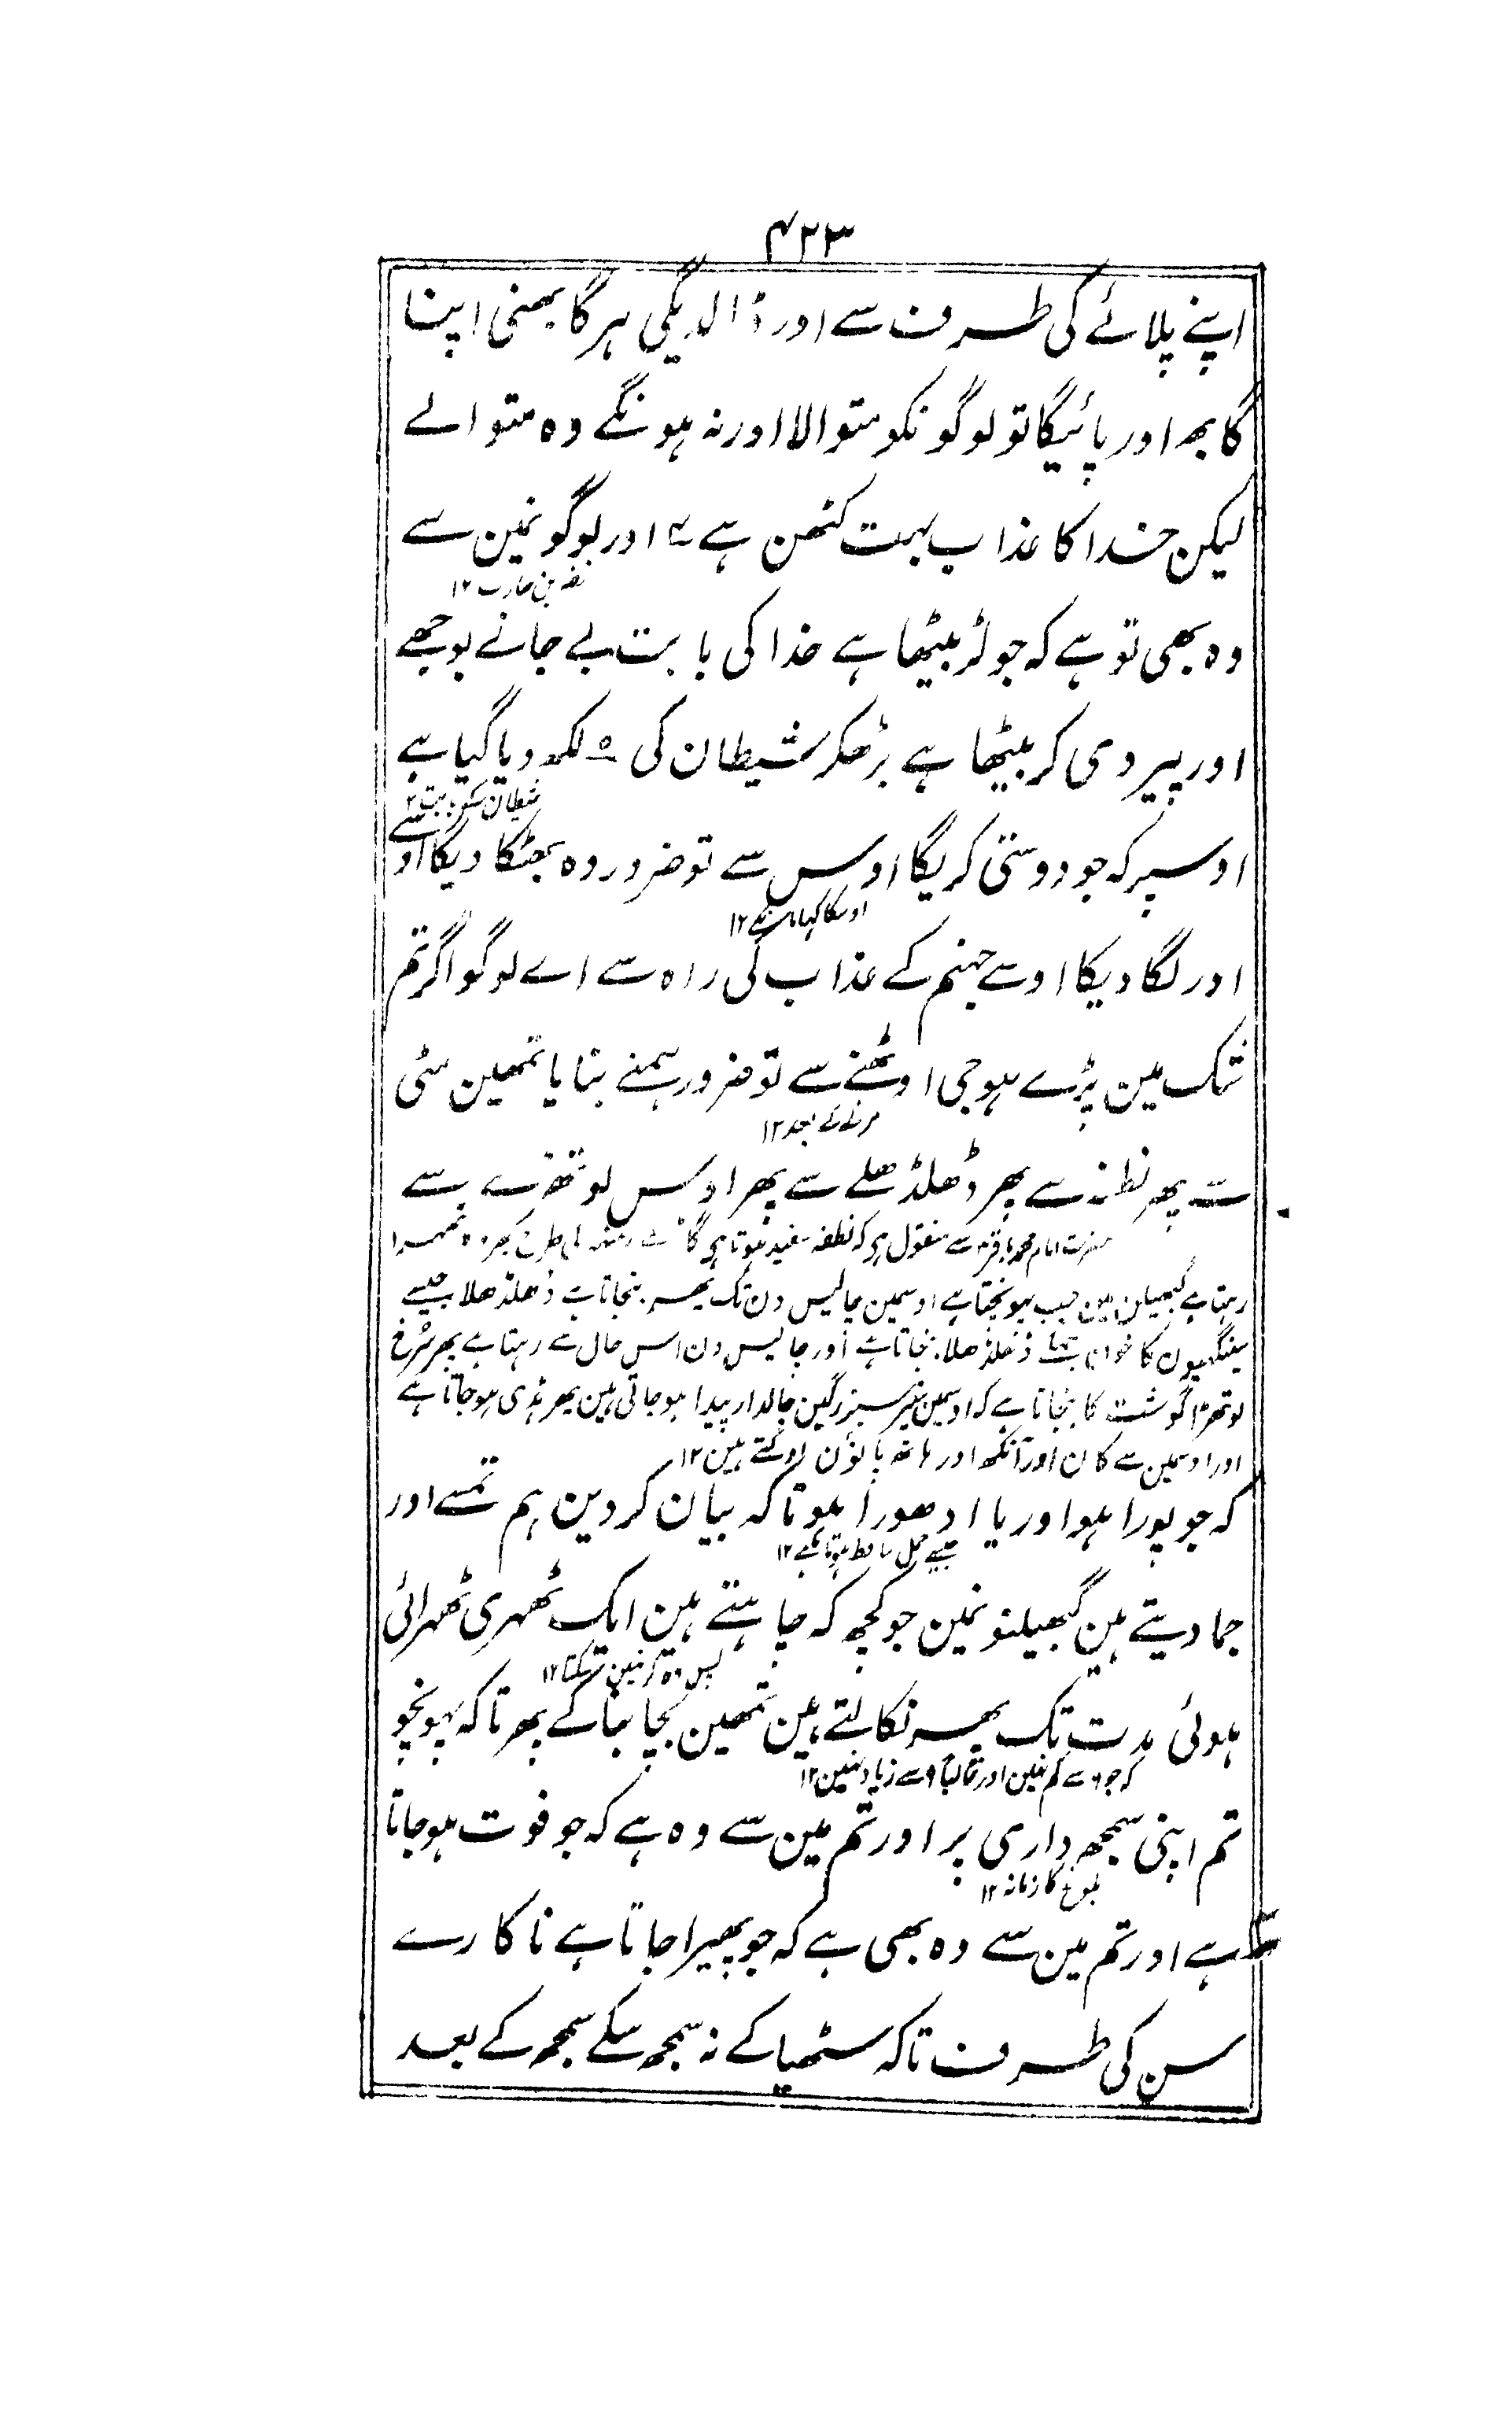 ۴۲۳
اپنے پلائے کی طرف سے اور ڈالدیگی ہر گابھنی اپنا
گابھ اور پائیگا تو لوگونکو متوالا اور نہ ہونگے وہ متوالے
لیکن خدا کا عذاب بہت کٹھن ہے ۴ اور لوگونمین سے
وہ بھی تو ہے کہ جو لڑ بیٹھا ہے خدا کی بابت بے جانے بوجھے
اور پیروی کر بیٹھا ہے بڑھکر شیطان کی ۵ لکھ دیا گیا ہے
شیطان
اوسپر کہ جو دوستی کریگا اوس سے تو ضرور وہ بھٹکا دیگا اوسے
اوسکا کہا ۱۲
اور لگا دیگا اوسے جہنم کے عذاب کی راہ سے اے لوگو اگر تم
شک مین پڑے ہو جی اوٹھنے سے تو ضرور ہمنے بنایا تمھین مٹی
مرنے کے بعد ۱۲
سے پھر نطفہ سے پھر ڈھلڈھلے سے پھر اوس لوتھڑے سے
حضرت امام محمد باقرؑ سے منقول ہی کہ نطفہ سفید ہوتا ہی کی طرح پھر وہ ٹھہرا
رہتا ہے گبھیلن مین جب پہونچتا ہے اوسمین چالیس دن تک پھر بنجاتا ہے ڈھلڈھلا جیسے
سینگھیون کا خون ڈھلڈھلا بنجاتا ہے اور چالیس دن اس حال سے رہتا ہے پھر سُرخ
لوتھڑا گوشت کا بنجاتا ہے کہ اوسمین سبز رگین جالدار پیدا ہو جاتی ہین پھر ہڈی ہو جاتا ہے
اور اوسمین سے کان اور آنکھ اور ہاتھ پانوُن اوگتے ہین ۱۲
کہ جو پورا ہو اور یا ادھورا ہو تا کہ بیان کردین ہم تمسے اور
جیسے حمل ساقط ہوتا ہے ۱۲
جما دیتے ہین گبھیلنونمین جو کچھ کہ چاہتے ہین ایک ٹھہری ٹھہرائی
پس وہ گر نہین سکتا ۱۲
ہوئی مدت تک پھر نکالتے ہین تمھین بچا بنا کے پھر تا کہ پہونچو
کہ جو ۶ سے کم نہین اور غالباً ۹ سے زیاد نہین ۱۲
تم اپنی سمجھ داری پر اور تم مین سے وہ ہے کہ جو فوت ہو جاتا
بلوغ کا زمانہ ۱۲
ہے اور تم مین سے وہ بھی ہے کہ جو پھیرا جاتا ہے ناکارے
سن کی طرف تا کہ سٹھیا کے نہ سمجھ سکے سمجھ کے بعد